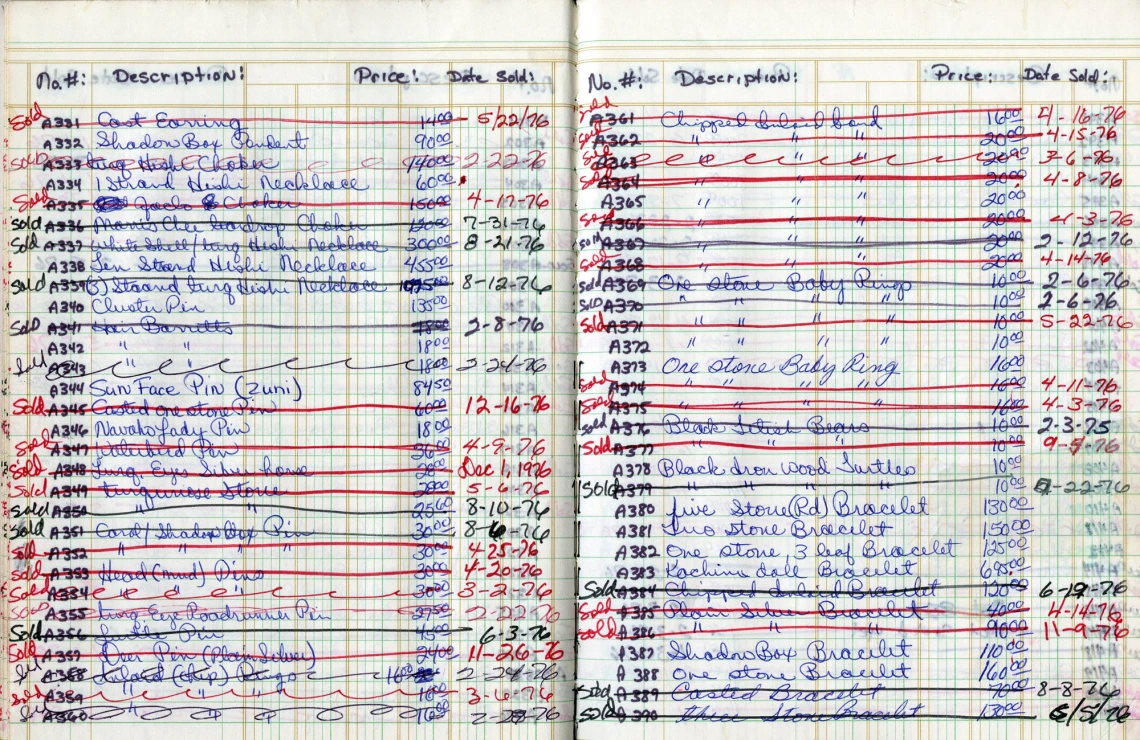 No. #: Description: Price: Date Sold:
Sold A331 Cast Earring 14 00 5/22/76
A332 Shadow Box Pendent 90 00
Sold A333 turq Hishi Choker 140 00 2-22-76
A334 1 Strand Hishi Necklace 60 00
Sold A335 Jaclo Choker 150 00 4-17-76
Sold A336 Choker 7-31-76
Sold A337 White Shell/turq Hishi Necklace 300 00 8-21-76
A338 Ten Strand Hishi Necklace 455 00
Sold A339 (3) Strand turq Hishi Necklace 8-12-76
A340 Cluster Pin 135 00
Sold A341 Hair Barretts 18 00 2-8-76
A342 " " 18 00
Sold A343 " " 18 00 2-24-76
A344 Sun Face Pin (Zuni) 84 50
Sold A345 Casted one stone Pin 60 00 12-16-76
A346 Navaho Lady Pin 18 00
Sold A347 Waterbird Pin 36 00 4-9-76
Sold A348 Turq. Eyes Silver horse 28 00 Dec 1, 1976
Sold A349 Turquoise Stone 20 00 5-6-76
Sold A350 " " 25 60 8-10-76
Sold A351 Coral/Shadow Box Pin 30 00 8-6-76
Sold A352 " " " 30 00 4-25-76
Sold A353 Head (mud) Pins 30 00 4-20-76
Sold A354 30 00 3-2-76
Sold A355 turq Eye Roadrunner Pin 27 50 2-22-76
Sold A356 Turtle Pin 45 00 6-3-76
Sold A357 Deer Pin (Plain Silver) 24 00 11-26-76
Sold A358 Inlaid (Chip) Rings 16 00 2-24-76
Sold A359 " " " 16 00 3-6-76
Sold A360 " 16 00 2-28-76
No. #: Description: Price: Date Sold:
Sold A361 Chipped Inlaid band 16 00 4-16-76
Sold A362 " " " 20 00 4-15-76
Sold A363 " " 20 00 3-6-76
Sold A364 " " " 20 00 4-8-76
A365 " " " 20 00
Sold A366 " " " 20 00 4-3-76
Sold A367 " " " 20 00 2-12-76
Sold A368 " " " 20 00 4-14-76
Sold A369 One Stone Baby Rings 10 00 2-6-76
Sold A370 " " " " 10 00 2-6-76
Sold A371 " " " " 10 00 5-22-76
A372 " " " " 10 00
A373 One Stone Baby Ring 16 00
Sold A374 " " " " 16 00 4-11-76
Sold A375 " " " " 16 00 4-3-76
Sold A376 Black Fetish Bears 10 00 2-3-75
Sold A377 " " " 10 00 9-5-76
A378 Black Iron Wood Turtles 10 00
Sold A379 " " " " 10 00 -22-76
A380 five Stone (Rd) Bracelet 130 00
A381 Two Stone Bracelet 150 00
A382 One Stone, 3 leaf Bracelet 125 00
A383 Kachina doll Bracelet 695 00
Sold A384 Chipped Inlaid Bracelet 120 00 6-19-76
Sold A385 Plain Silver Bracelet 40 00 4-14-76
Sold A386 " " " 90 00 11-9-76
A387 Shadow Box Bracelet 110 00
A388 One stone Bracelet 160 00
Sold A389 Casted Bracelet 70 00 8-8-76
Sold A390 three Stone Bracelet 130 00 6/5/76